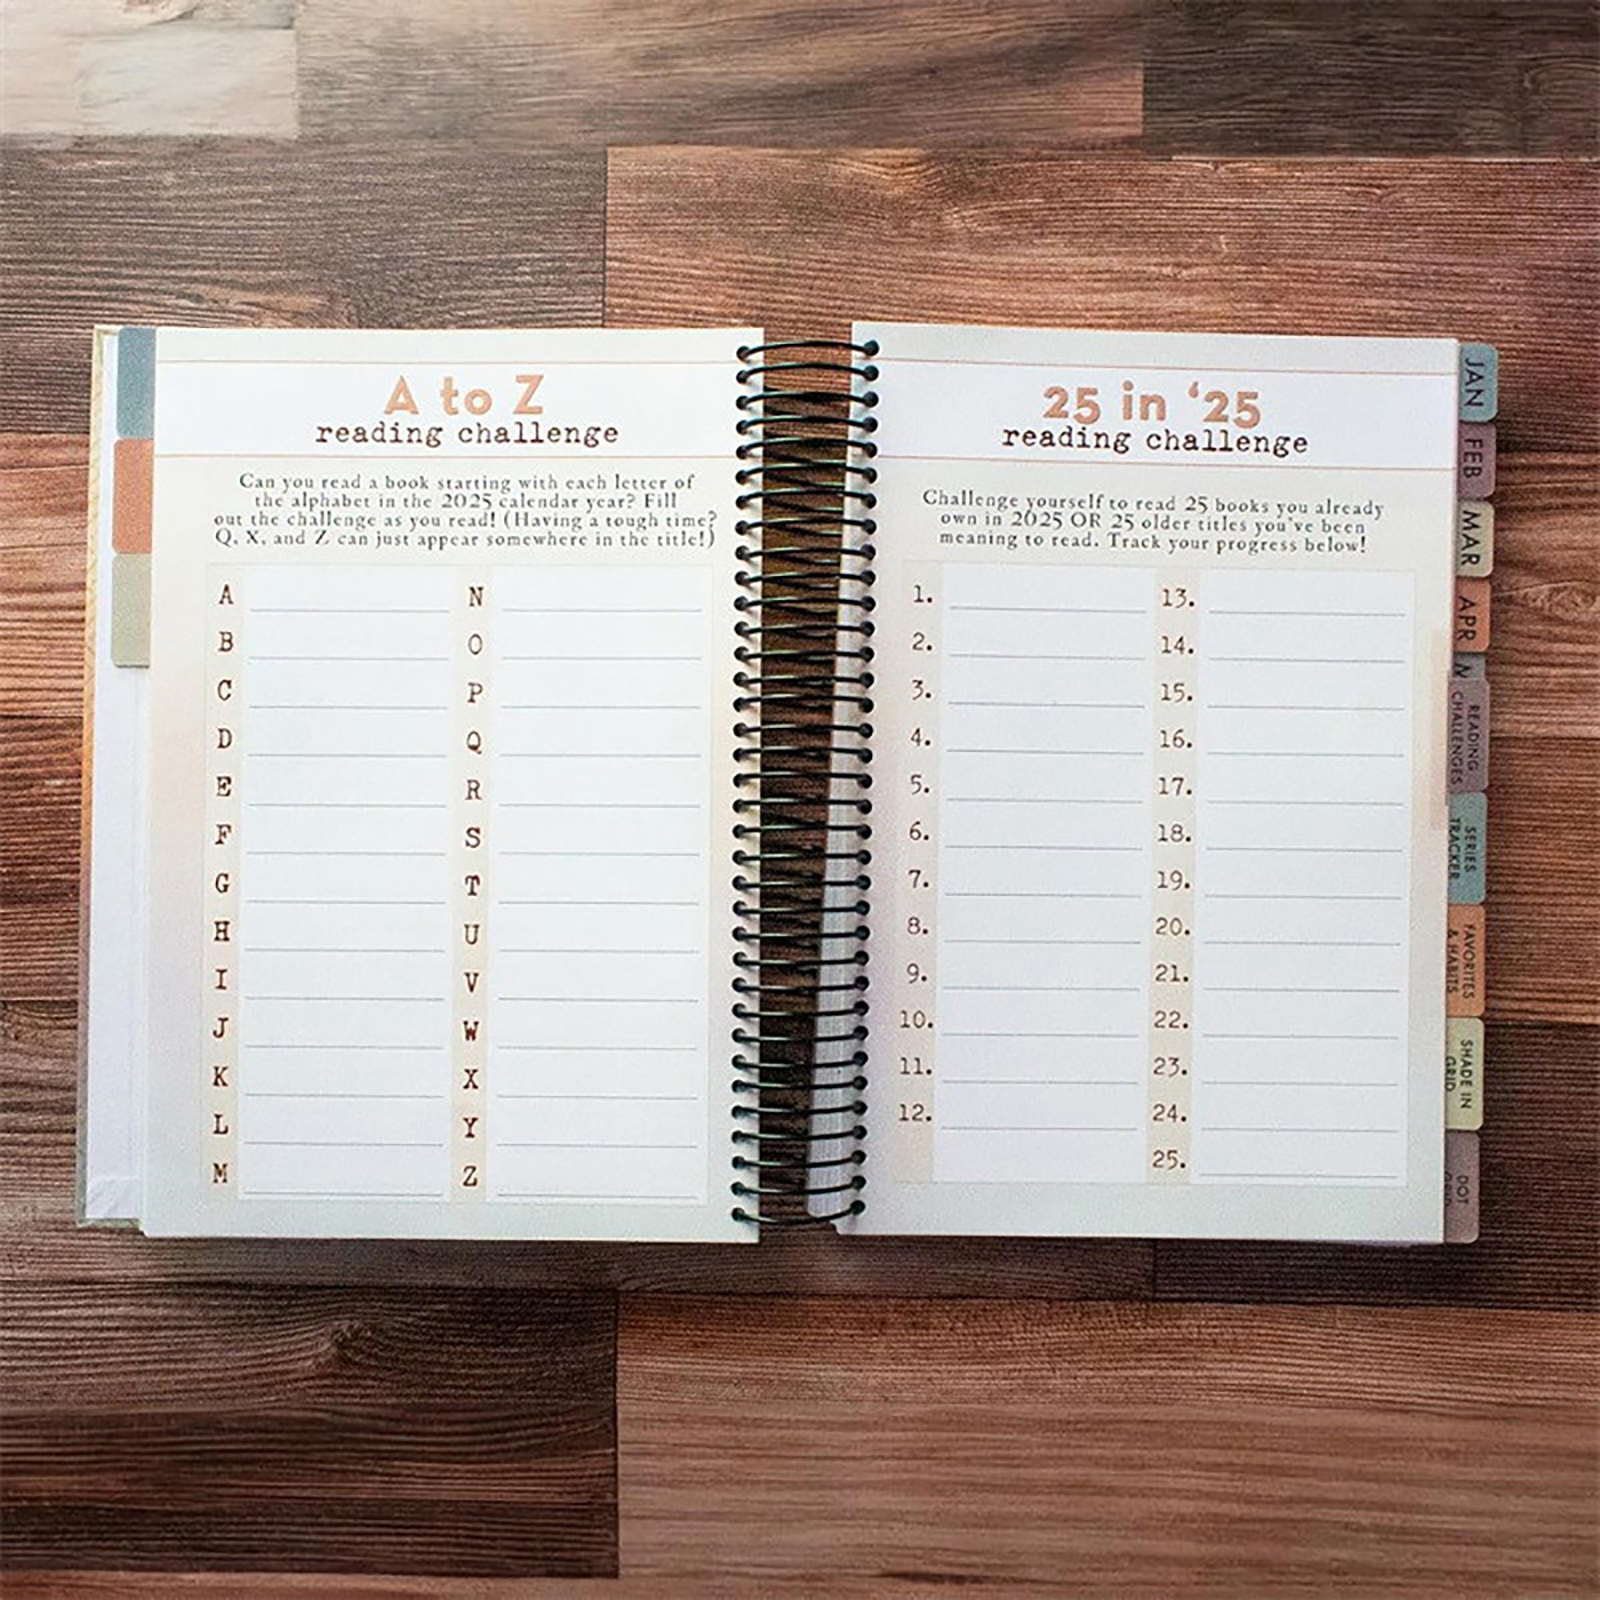 A to Z
reading challenge
Can you read a book starting with each letter of
the alphabet in the 2025 calendar year? Fill
out the challenge as you read! (Having a tough time?
Q, X, and Z can just appear somewhere in the title!)
A
B
C
D
E
F
G
H
I
J
K
L
M
N
O
P
Q
R
S
T
U
V
W
X
Y
Z
25 in ‘25
reading challenge
Challenge yourself to read 25 books you already
own in 2025 OR 25 older titles you've been
meaning to read. Track your progress below!
1.
2.
3.
4.
5.
6.
7.
8.
9.
10.
11.
12.
13.
14.
15.
16.
17.
18.
19.
20.
21.
22.
23.
24.
25.
JAN
FEB
MAR
APR
READING
CHALLENGES
SERIES
TRACKER
FAVORITES
& HABITS
SHADE IN
GRID
DOT